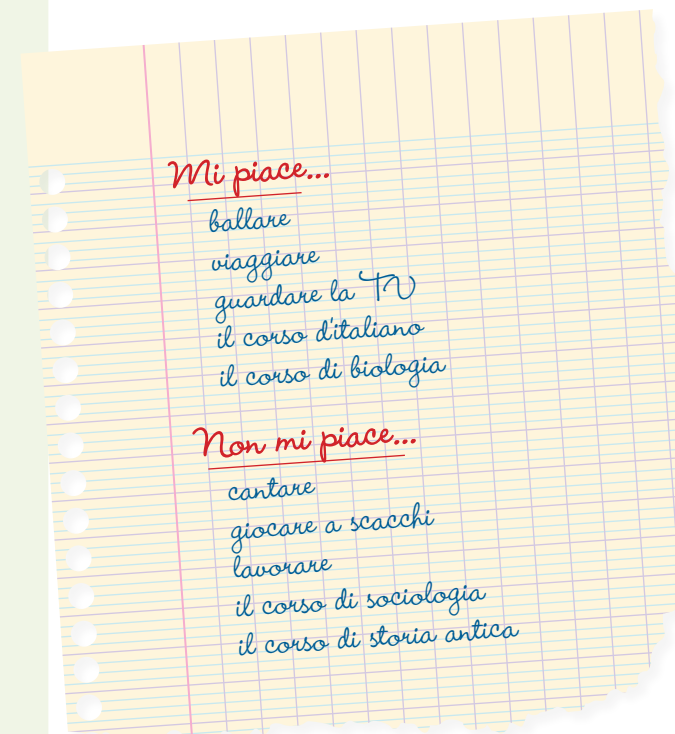 Mi piace...
ballare
viaggiare
guardare la TV
il corso d'italiano
il corso di biologia
Non mi piace...
cantare
giocare a scacchi
lavorare
il corso di sociologia
il corso di storia antica